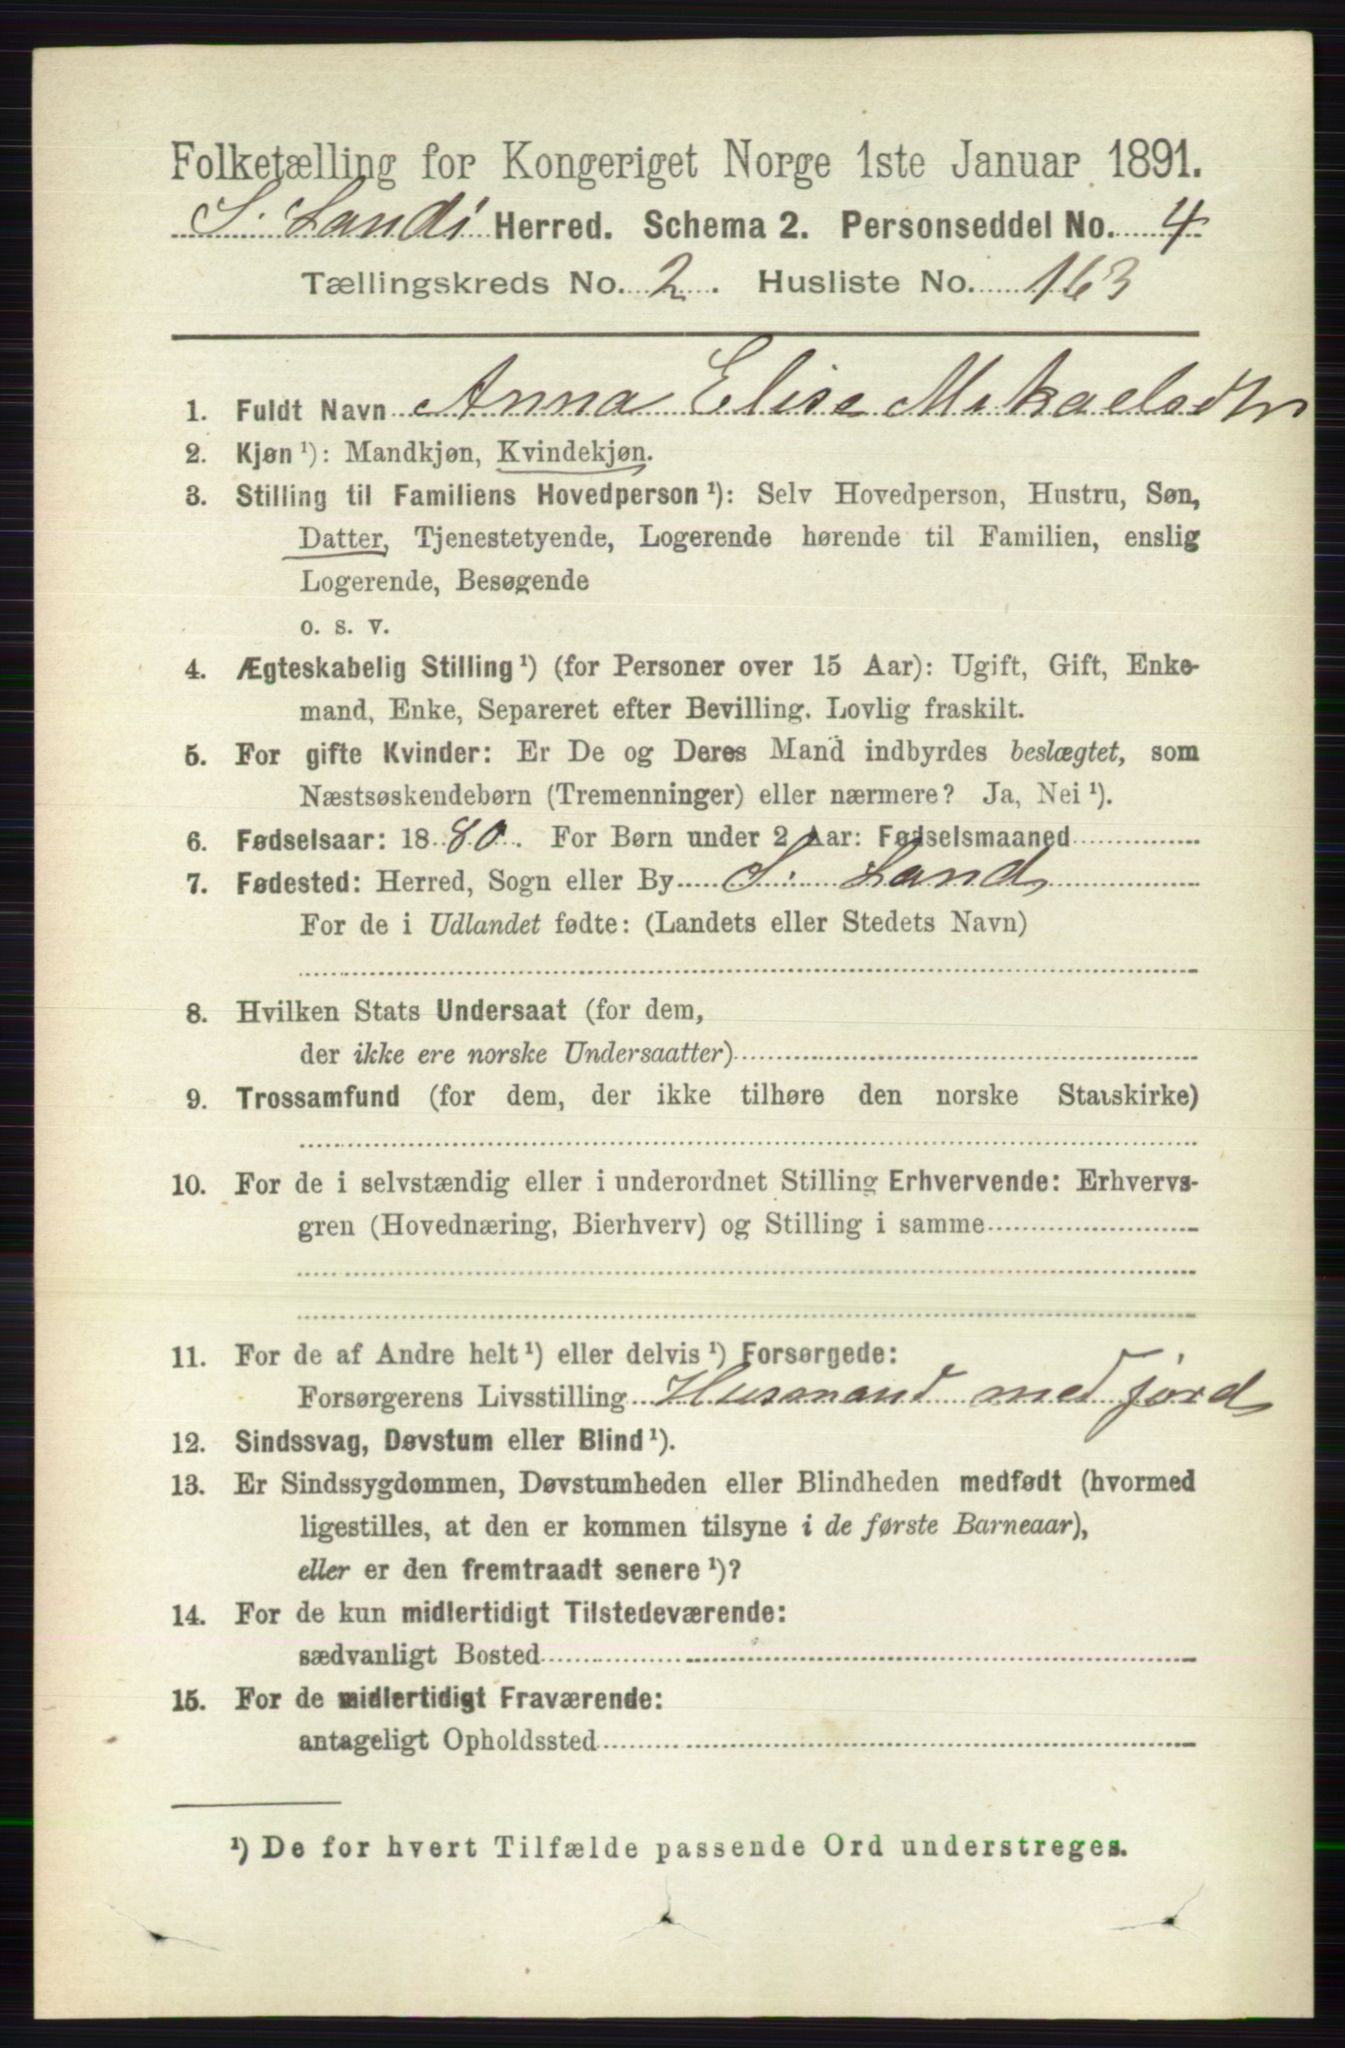 Folketælling for Kongeriget Norge 1ste Januar 1891.
S. Lands Herred. Schema 2. Personseddel No. 4
Tællingskreds No. 2. Husliste No. 163
1. Fuldt Navn Anna Elise Mikaelsdtr
2. Kjøn ¹): Mandkjøn, Kvindekjøn.
3. Stilling til Familiens Hovedperson ¹): Selv Hovedperson, Hustru, Søn,
Datter, Tjenestetyende, Logerende hørende til Familien, enslig
Logerende, Besøgende
o. s. v.
4. Ægteskabelig Stilling ¹) (for Personer over 15 Aar): Ugift, Gift, Enke-
mand, Enke, Separeret efter Bevilling. Lovlig fraskilt.
5. For gifte Kvinder: Er De og Deres Mand indbyrdes beslægtet, som
Næstsøskendebørn (Tremenninger) eller nærmere? Ja, Nei ¹).
6. Fødselsaar: 1880. For Børn under 2 Aar: Fødselsmaaned
7. Fødested: Herred, Sogn eller By S. Land
For de i Udlandet fødte: (Landets eller Stedets Navn)
8. Hvilken Stats Undersaat (for dem,
der ikke ere norske Undersaatter)
9. Trossamfund (for dem, der ikke tilhøre den norske Statskirke)
10. For de i selvstændig eller i underordnet Stilling Erhvervende: Erhvervs-
gren (Hovednæring, Bierhverv) og Stilling i samme
11. For de af Andre helt ¹) eller delvis ¹) Forsørgede:
Forsørgerens Livsstilling Husmand med jord
12. Sindssvag, Døvstum eller Blind ¹).
13. Er Sindssygdommen, Døvstumheden eller Blindheden medfødt (hvormed
ligestilles, at den er kommen tilsyne i de første Barneaar),
eller er den fremtraadt senere ¹)?
14. For de kun midlertidigt Tilstedeværende:
sædvanligt Bosted
15. For de midlertidigt Fraværende:
antageligt Opholdssted
¹) De for hvert Tilfælde passende Ord understreges.